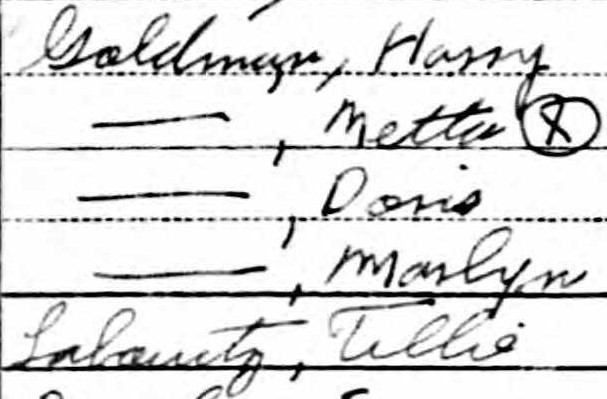 Goldman, Harry
—, Metta Ⓧ
—, Doris
—, Marlyn
Labowitz, Tillie